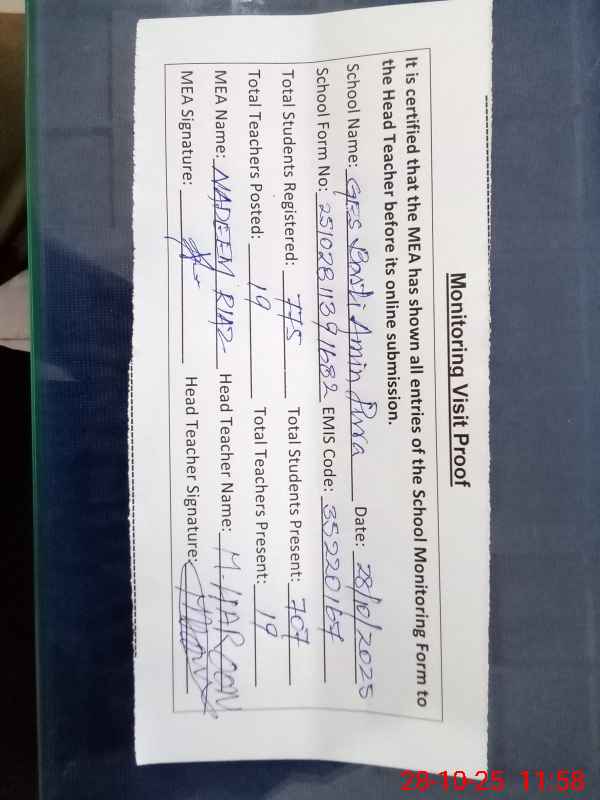 Monitoring Visit Proof
It is certified that the MEA has shown all entries of the School Monitoring Form to
the Head Teacher before its online submission.
School Name: GES Basti Amin Pura Date: 28/10/2025
School Form No: 25102811391682 EMIS Code: 35220167
Total Students Registered: 775 Total Students Present: 707
Total Teachers Posted: 19 Total Teachers Present: 19
MEA Name: NADEEM RIAZ Head Teacher Name: M. HAROON
MEA Signature: Head Teacher Signature:
28-10-25 11:58